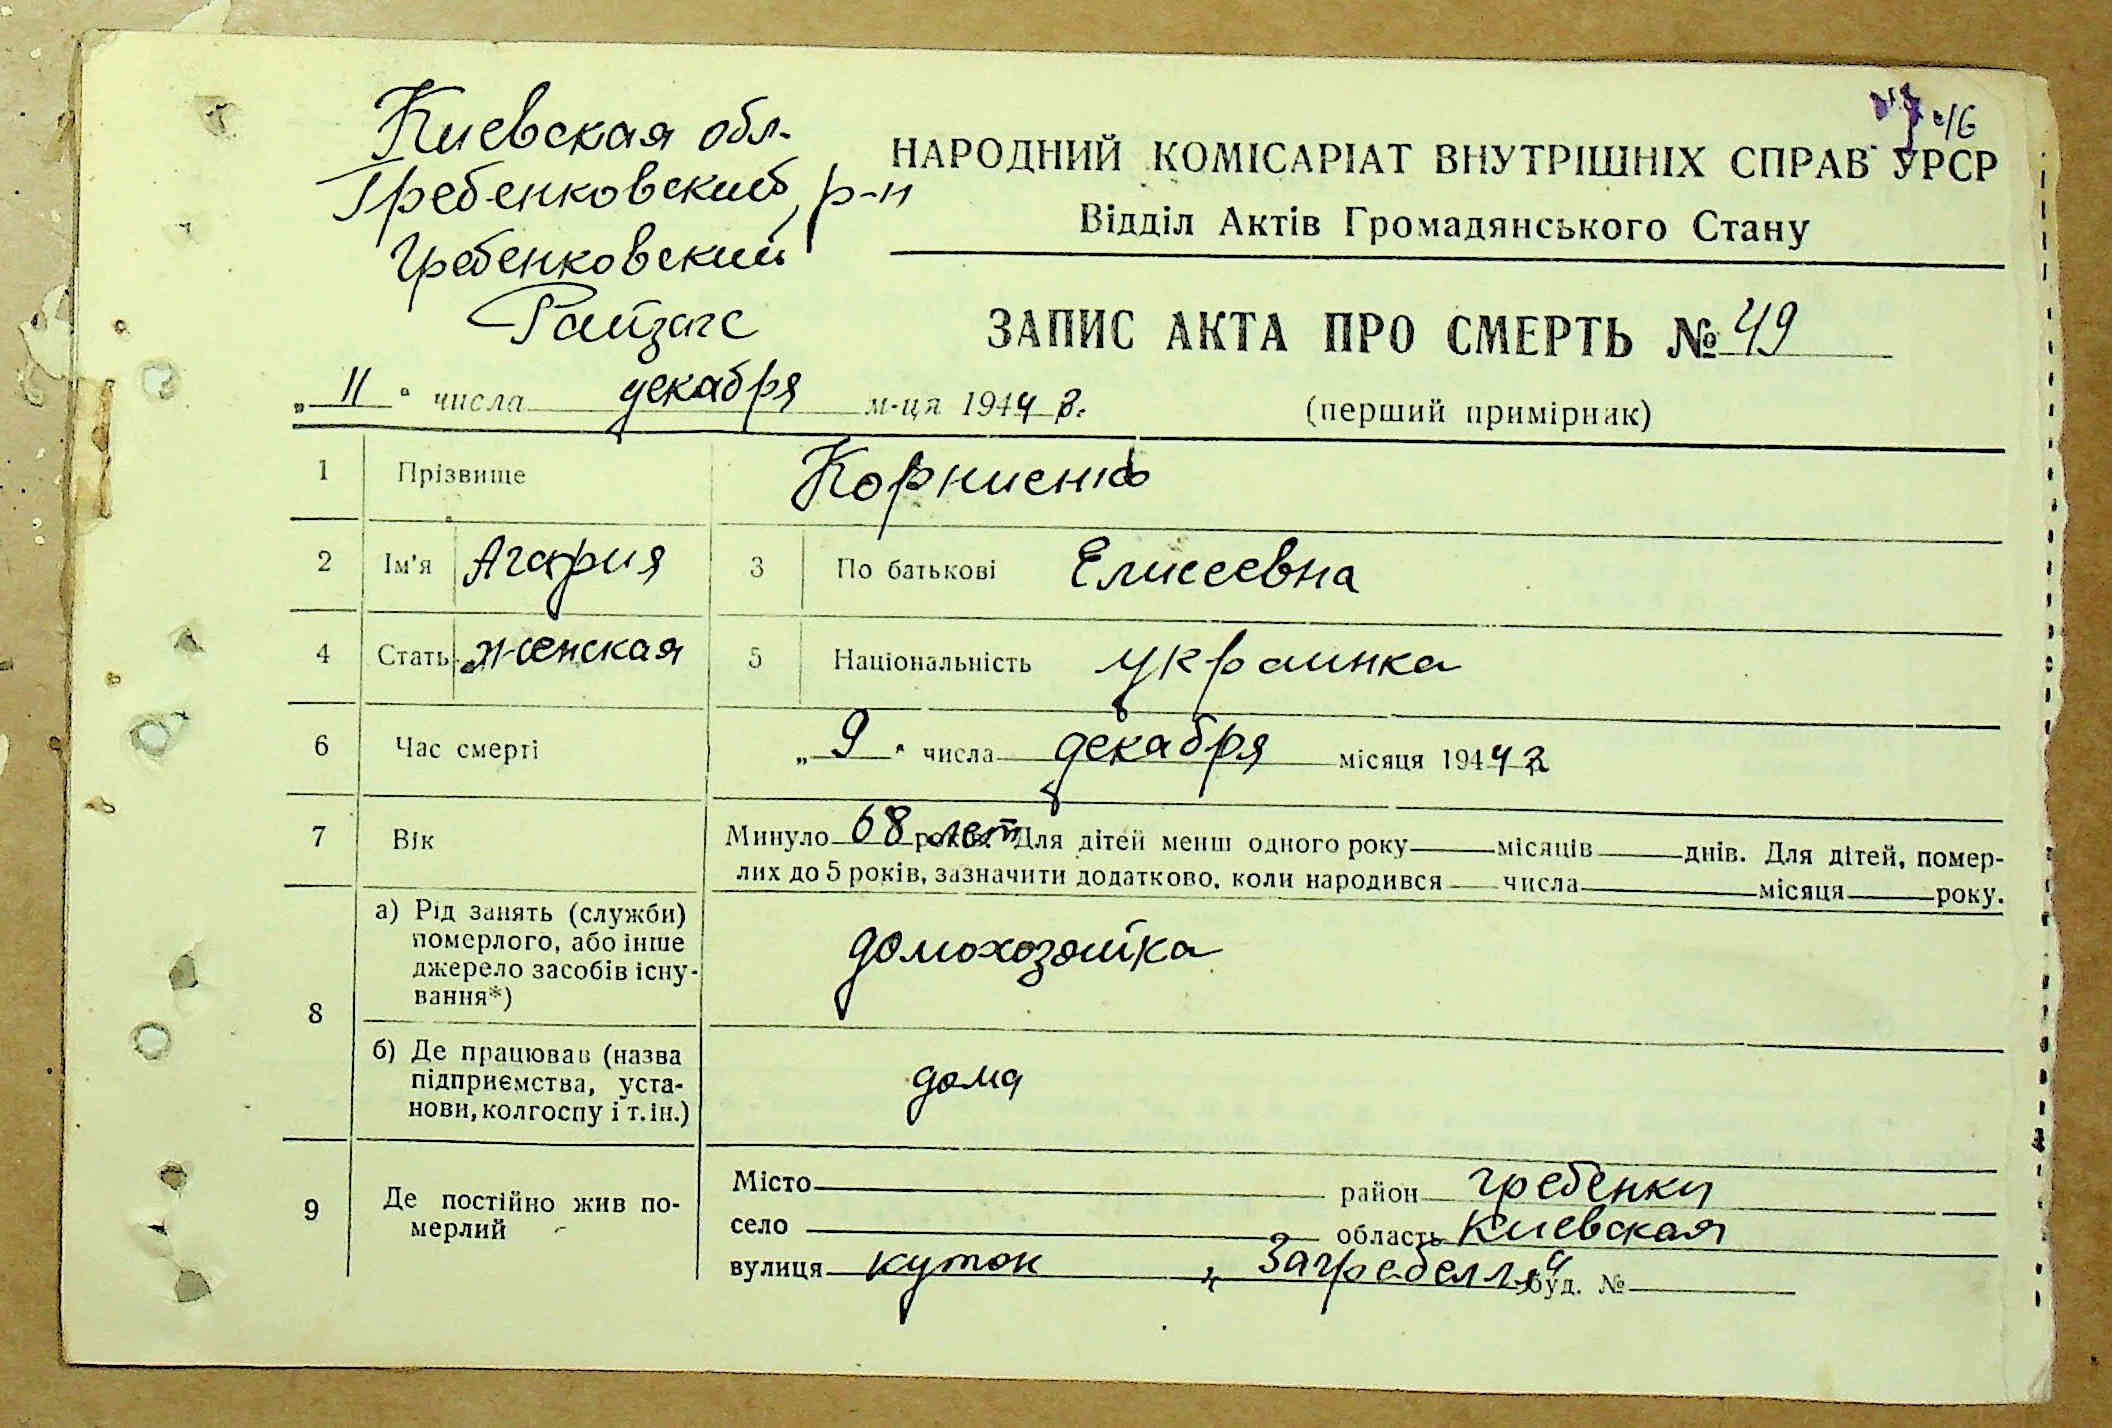 Киевская обл.
Гребенковский р-н
Гребенковский
Райзагс
НАРОДНИЙ КОМІСАРІАТ ВНУТРІШНІХ СПРАВ УРСР
Відділ Актів Громадянського Стану
ЗАПИС АКТА ПРО СМЕРТЬ № 49
„11“ числа декабря м-ця 1944 г.
(перший примірник)
1 Прізвище Корниенко
2 Ім'я Агафия 3 По батькові Елисеевна
4 Стать женская 5 Національність украинка
6 Час смерті „9“ числа декабря місяця 1944 г
7 Вік Минуло 68 лет років. Для дітей менш одного року місяців днів. Для дітей, помер-
лих до 5 років, зазначити додатково, коли народився числа місяця року.
8 а) Рід занять (служби)
померлого, або інше
джерело засобів існу-
вання*)
домохозяйка
б) Де працював (назва
підприємства, уста-
нови, колгоспу і т. ін.)
дома
9 Де постійно жив по-
мерлий
Місто район Гребенки
село область Киевская
вулиця куток „Загребелля“ буд. №